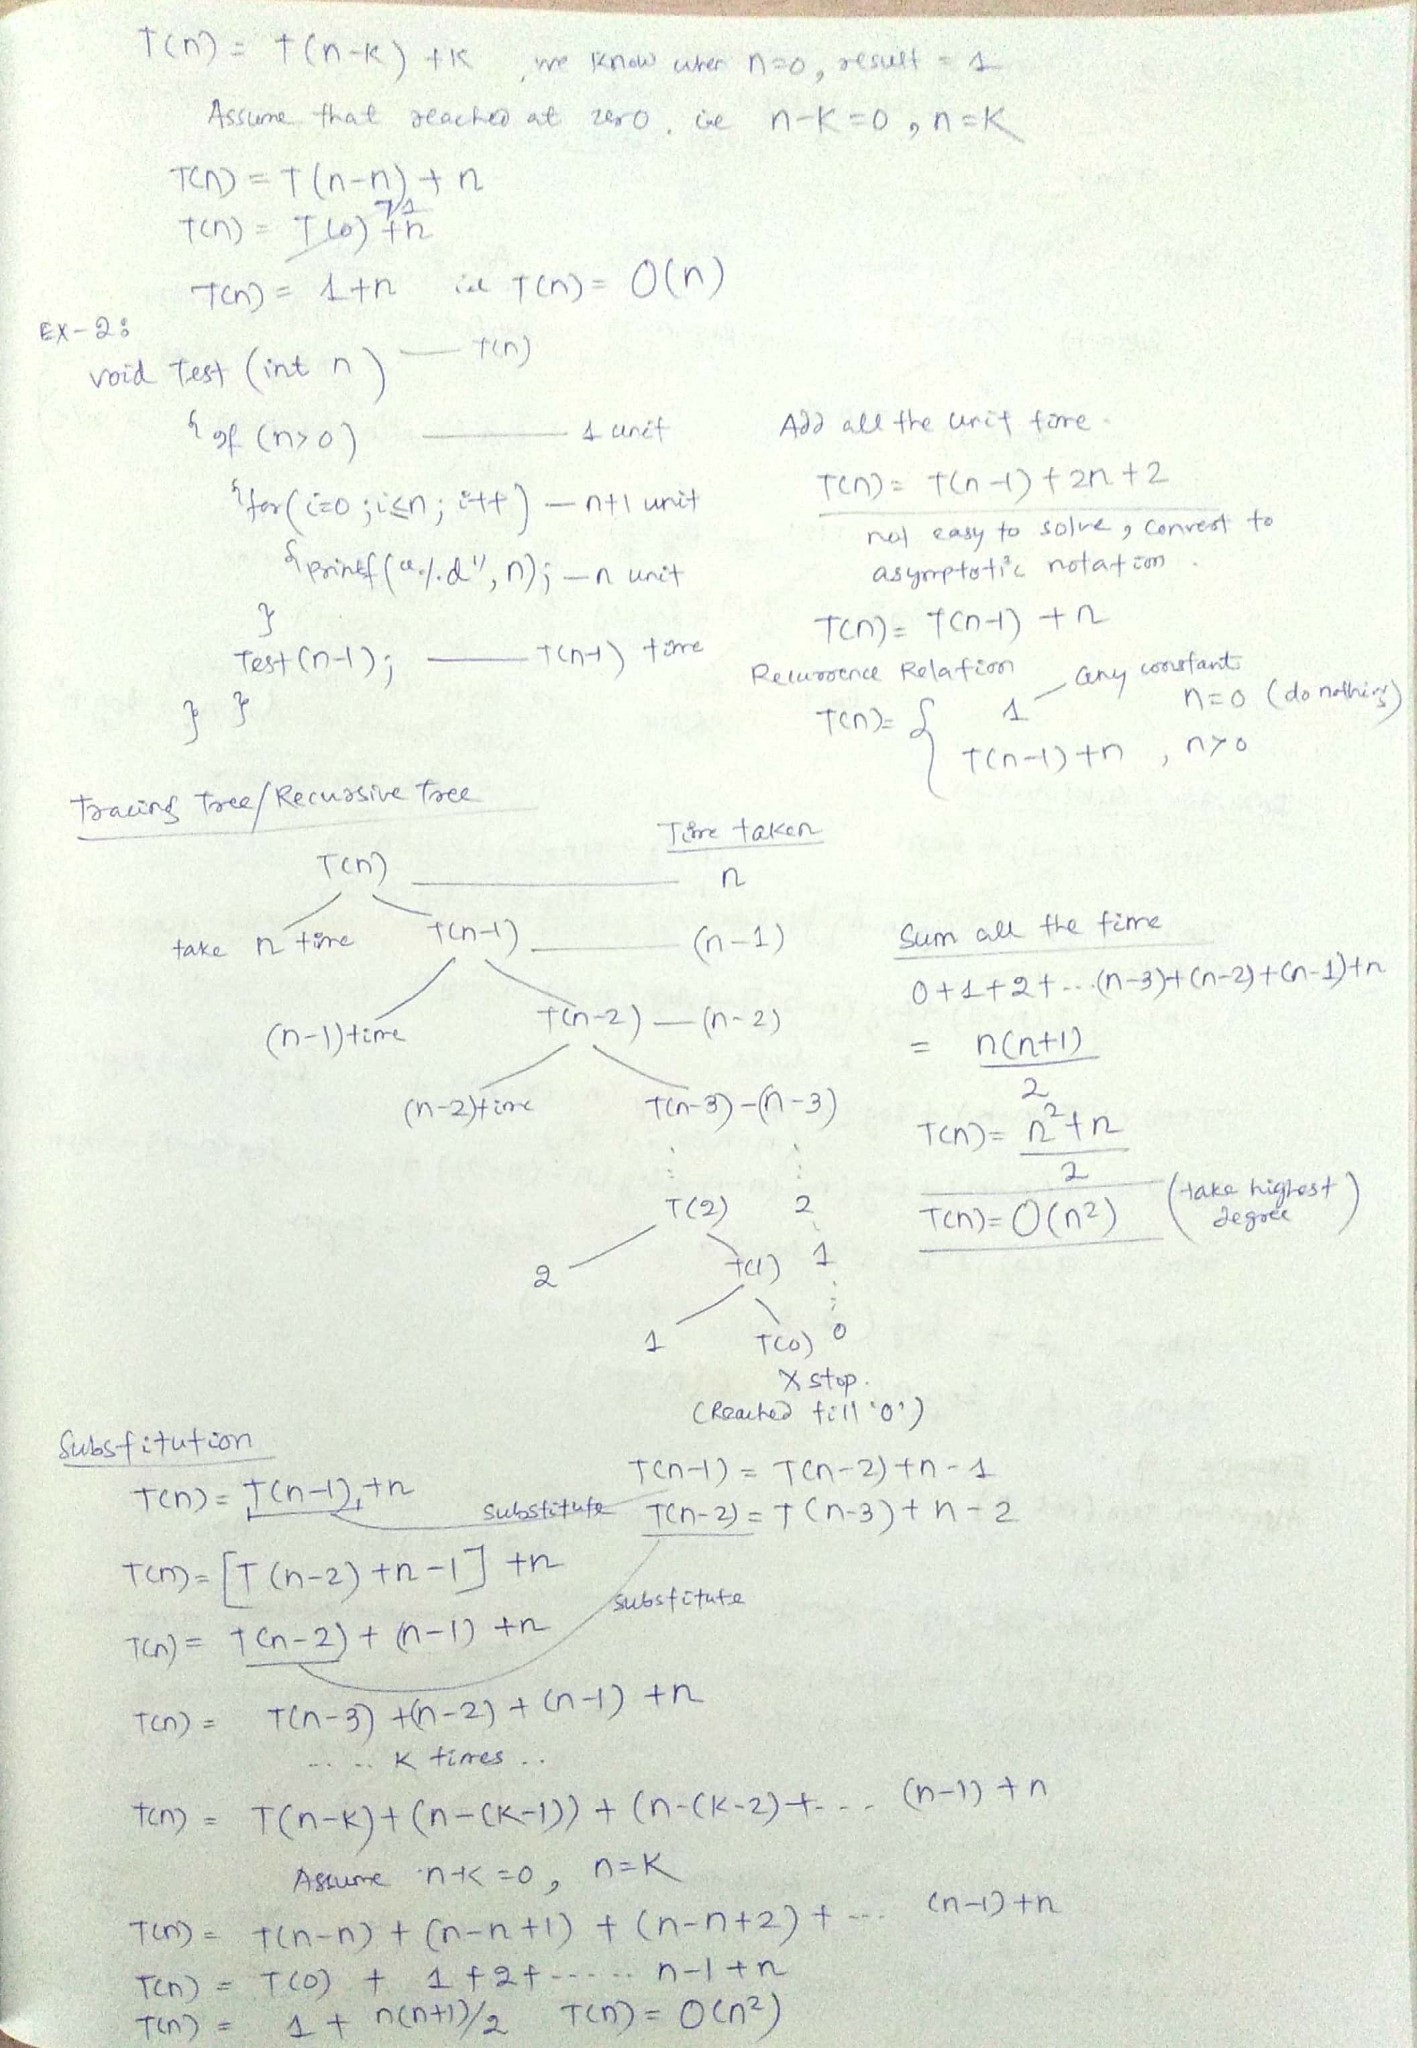 T(n) = T(n-K) + K , we know when n=0, result = 1
Assume that reached at zero, ie n-K=0, n=K
T(n) = T(n-n) + n
T(n) = T(0) + n
1
T(n) = 1+n ie T(n) = O(n)
EX-2:
void Test (int n) — T(n)
{ if (n>0) — 1 unit
{ for (i=0; i≤n; i++) — n+1 unit
{ printf("%d", n); — n unit
}
Test(n-1); — T(n-1) time
} }
Add all the unit time.
T(n) = T(n-1) + 2n + 2
not easy to solve, convert to
asymptotic notation.
T(n) = T(n-1) + n
Recurrence Relation
T(n) = { 1 — any constant n=0 (do nothing)
T(n-1)+n , n>0
Tracing Tree/Recursive Tree
Time taken
T(n) — n
take n time T(n-1) — (n-1)
(n-1)time T(n-2) — (n-2)
(n-2)time T(n-3) - (n-3)
T(2) 2
2 T(1) 1
1 T(0) 0
X stop.
(Reached till '0')
Sum all the time
0+1+2+...(n-3)+(n-2)+(n-1)+n
= n(n+1)
2
T(n) = n²+n
2
T(n) = O(n²) (take highest degree)
Substitution
T(n) = T(n-1) + n
substitute
T(n-1) = T(n-2)+n-1
T(n-2) = T(n-3)+n-2
T(n) = [T(n-2) + n-1] + n
substitute
T(n) = T(n-2) + (n-1) + n
T(n) = T(n-3) + (n-2) + (n-1) + n
..... K times ..
T(n) = T(n-K) + (n-(K-1)) + (n-(K-2)+... (n-1) + n
Assume n-K=0, n=K
T(n) = T(n-n) + (n-n+1) + (n-n+2) + ... (n-1)+n
T(n) = T(0) + 1+2+...... n-1+n
T(n) = 1 + n(n+1)/2 T(n) = O(n²)